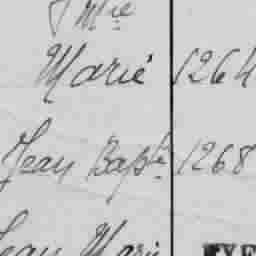 J Mie
Marie 1264
Jean Bapte 1268
Jean Marie